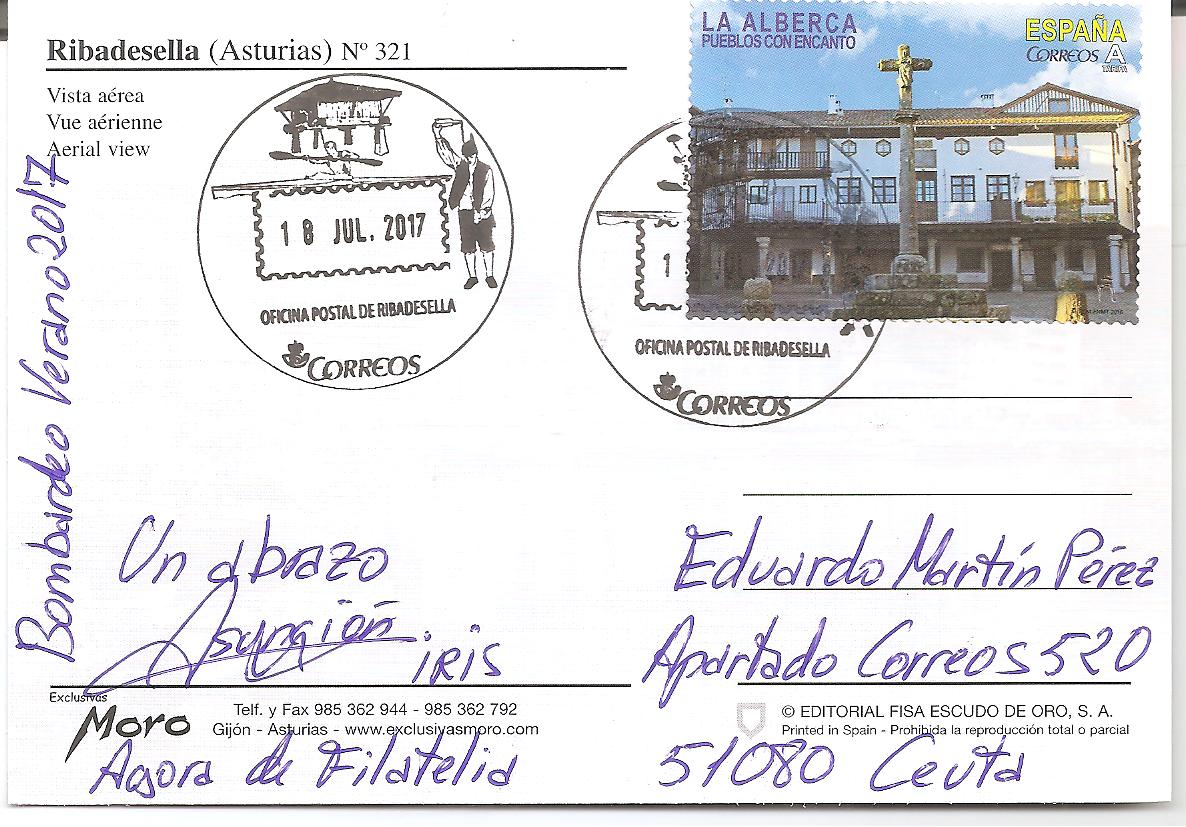 Ribadesella (Asturias) Nº 321
Vista aérea
Vue aérienne
Aerial view
Bombardeo Verano 2017
18 JUL. 2017
OFICINA POSTAL DE RIBADESELLA
CORREOS
LA ALBERCA
PUEBLOS CON ENCANTO
ESPAÑA
CORREOS A
TARIFA
1
OFICINA POSTAL DE RIBADESELLA
CORREOS
Un abrazo
Asunción.
IRIS
Eduardo Martín Pérez
Apartado Correos 520
51080 Ceuta
Exclusivas
Moro
Telf. y Fax 985 362 944 - 985 362 792
Gijón - Asturias - www.exclusivasmoro.com
Agora de Filatelia
© EDITORIAL FISA ESCUDO DE ORO, S. A.
Printed in Spain - Prohibida la reproducción total o parcial